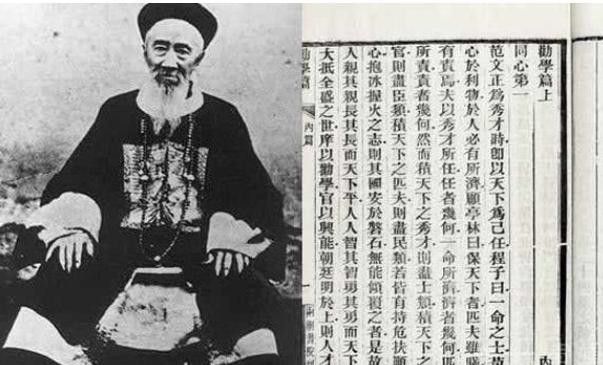 內
勸學篇上
同心第一
范文正爲秀才時卽以天下爲己任程子曰一命之士苟
心於利物於人必有所濟顧亭林曰保天下者匹夫雖賤
有責焉夫以秀才所任任者幾何一命所濟濟者幾何匹
所責責者幾何然而積天下之秀才則盡士類積天下之
官則盡臣類積天下之匹夫則盡民類若皆有持危扶顚
心抱冰握火之志則其國安於磐石無能傾覆之者是故
人親其親長其長而天下平人人智其智勇其勇而天下
大抵全盛之世庠以勸學官以興能朝廷明於上則人才
勸學篇
內篇
一